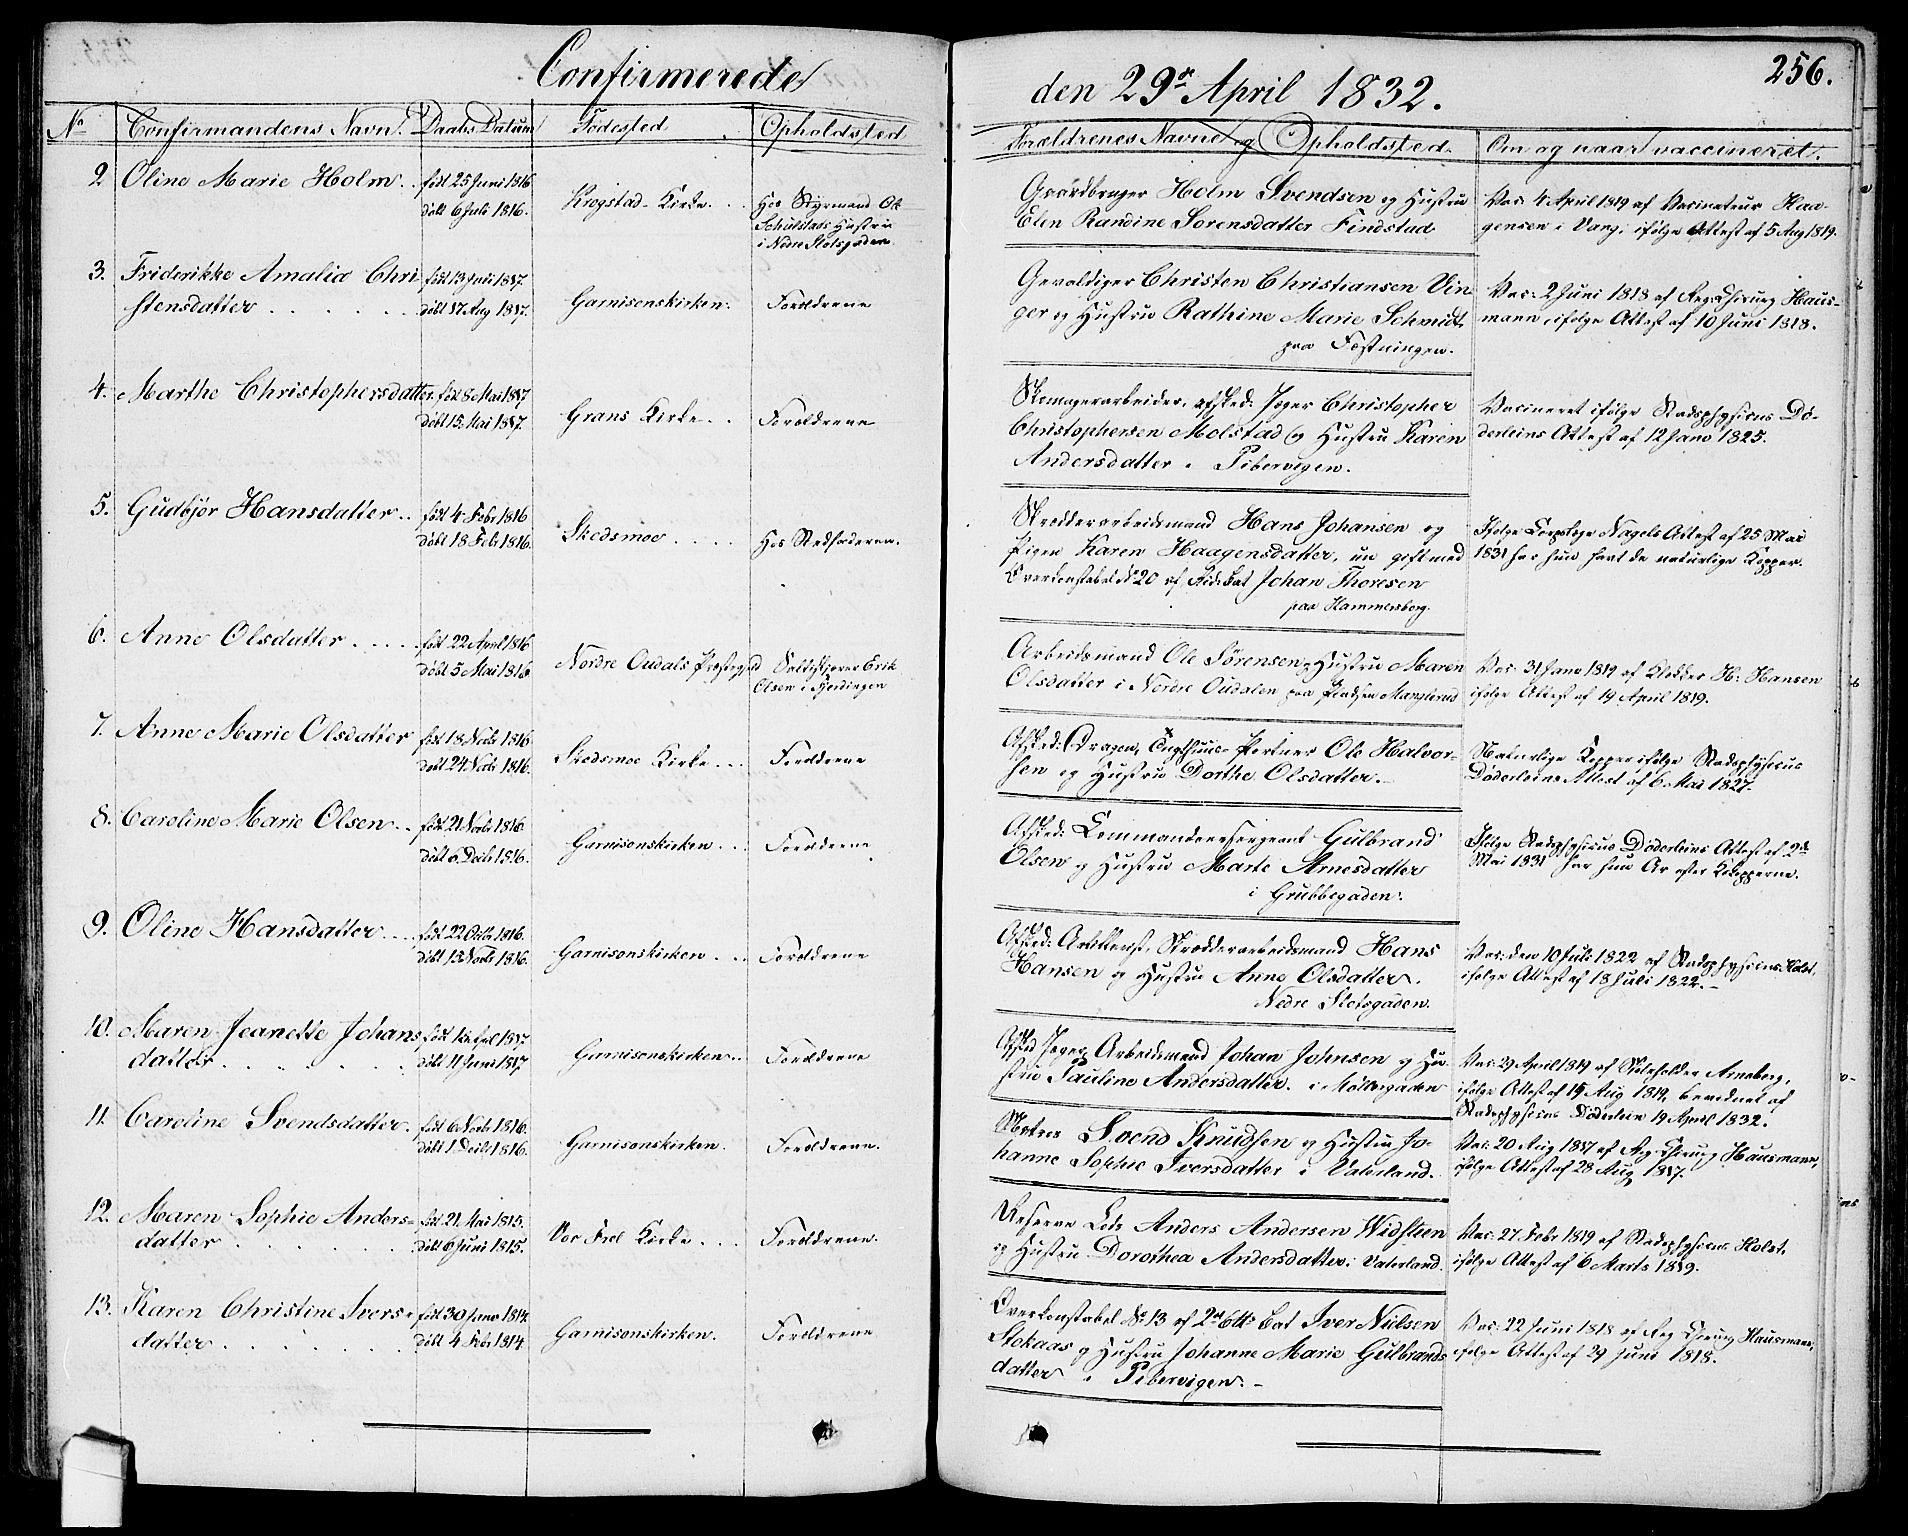 Confirmerede
den 29de April 1832.
256.
No Confirmandens Navn. Daabs Datum Fødested Opholdsted
Forældrenes Navne og Opholdsted. Om og naar vaccineret.
2 Oline Marie Holm . . født 25 Juni 1816
døbt 6 Juli 1816.
Krogstad-Kirke. . .
Hos Styrmand Ole
Schulstads Hustru
i Nedre Slotsgaden.
Gaardbruger Holm Svendsen og Hustru
Elen Randine Sørensdatter Findstad
Vac: 4 April 1819 af Vaccinateur Haa-
gensen i Vang, ifølge Attest af 5 Aug 1819.
3. Friderikke Amalia Chri
stensdatter . . . . . .
født 13 Juli 1817.
døbt 17 Aug 1817.
Garnisonskirken.
Forældrene
Gevaldiger Christen Christiansen Vin
ger og Hustru Rathine Marie Schmidt
paa Fæstningen.
Vac: 2 Juni 1818 af Reg: Chirurg Haus-
mann, ifølge Attest af 10 Juni 1818.
4. Marthe Christophersdatter. født 8 Mai 1817
døbt 15 Mai 1817.
Grans Kirke. . .
Forældrene
Skomagerarbeider, afsked: Jæger Christopher
Christophersen Molstad og Hustru Karen
Andersdatter i Pibervigen.
Vaccineret ifølge Stadsphysicus Dø-
derleins Attest af 12 Janr 1825.
5. Gudbjør Hansdatter . . født 4 Febr 1816
døbt 18 Febr 1816.
Skedsmoe . . . .
Hos Stedfaderen.
Skrædderarbeidsmand Hans Johansen og
Pigen Karen Haagensdatter, nu gift med
Overkonstabel No 20 af Bat Johan Thoresen
paa Hammersborg.
Ifølge Corpslæge Nagels Attest af 25 Mai
1831 har hun havt de naturlige Kopper.
6. Anne Olsdatter . . . . . født 22 April 1816
døbt 5 Mai 1816
Nordre Oudals Præstegjeld
Erik
Olsen i Fjerdingen
Arbeidsmand Ole Sørensen og Hustru Maren
Olsdatter i Nordre Oudalen paa Pladsen Manglerud
Vac: 31 Janr 1819 af Klokker H: Hansen
ifølge Attest af 19 April 1819.
7. Anne Marie Olsdatter født 18 Novbr 1816
døbt 24 Novbr 1816.
Skedsmoe Kirke . . .
Forældrene
Afsked: Dragon, Tugthuus-Portner Ole Halvor-
sen og Hustru Dorthe Olsdatter.
Naturlige Kopper ifølge Stadsphysicus
Døderleins Attest af 6 Mai 1827.
8. Caroline Marie Olsen . . født 21 Novbr 1816.
døbt 6 Decbr 1816.
Garnisonskirken . . .
Forældrene
Afsked: Commandeersergeant Gulbrand
Olsen og Hustru Marte Arnesdatter
i Grubbegaden.
Ifølge Stadsphysicus Døderleins Attest af 2de
Mai 1831 har hun Ar efter Kopperne.
9. Oline Hansdatter . . . født 22 Octbr 1816.
døbt 13 Novbr 1816.
Garnisonskirken . . .
Forældrene
Afsked: Artillerist, Skrædderarbeidsmand Hans
Hansen og Hustru Anne Olsdatter.
Nedre Slotsgaden.
Vac: den 10 Juli 1822 af Stadsphysicus Holst,
ifølge Attest af 18 Juli 1822.-
10. Maren Jeanette Johans
datter . . . . . . .
døbt 11 Juni 1817
Garnisonskirken . .
Forældrene
Afsked Jæger, Arbeidsmand Johan Johnsen og Hu-
stru Pauline Andersdatter. i Møllergaden
Vac: 29 April 1819 af Skoleholder Arneberg,
ifølge Attest af 15 Aug 1819, bevidnet af
Stadsphysicus Døderlein 19 April 1832.
11. Caroline Svendsdatter. født 6 Novbr 1816.
døbt 1 Decbr 1816.
Garnisonskirken.
Forældrene.
Svend Knudsen og Hustru Jo-
hanne Sophie Iversdatter i Vaterland.
Vac: 20 Aug 1817 af Reg: Chirurg Hausmann,
ifølge Attest af 28 Aug 1817.
12. Maren Sophie Anders-
datter . . . . . . .
født 21. Mai 1815.
døbt 6 Juni 1815.
Vor Frel Kirke . . .
Forældrene.
Reserve Lods Anders Andersen Widsteen
og Hustru Dorothea Andersdatter i Vaterland.
Vac: 27 Febr 1819 af Stadsphysicus Holst,
ifølge Attest af 6 Marts 1819.
13. Karen Christine Ivers-
datter . . . . . . .
født 30 Janr 1814.
døbt 4 Febr 1814.
Garnisonskirken.
Forældrene
Overkonstabel No 13 af 2den Bat Iver Nielsen
Stokaas og Hustru Johanne Marie Gulbrands
datter i Pibervigen.-
Vac: 22 Juni 1818 af Reg Chirurg Hausmann,
ifølge Attest af 29 Juni 1818.